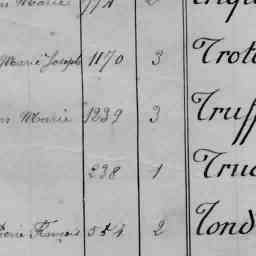 Marie 774
Marie Joseph 1170 3 Trot
Marie 1239 3 Truff
238 1 True
Pierre François 554 2 Tond